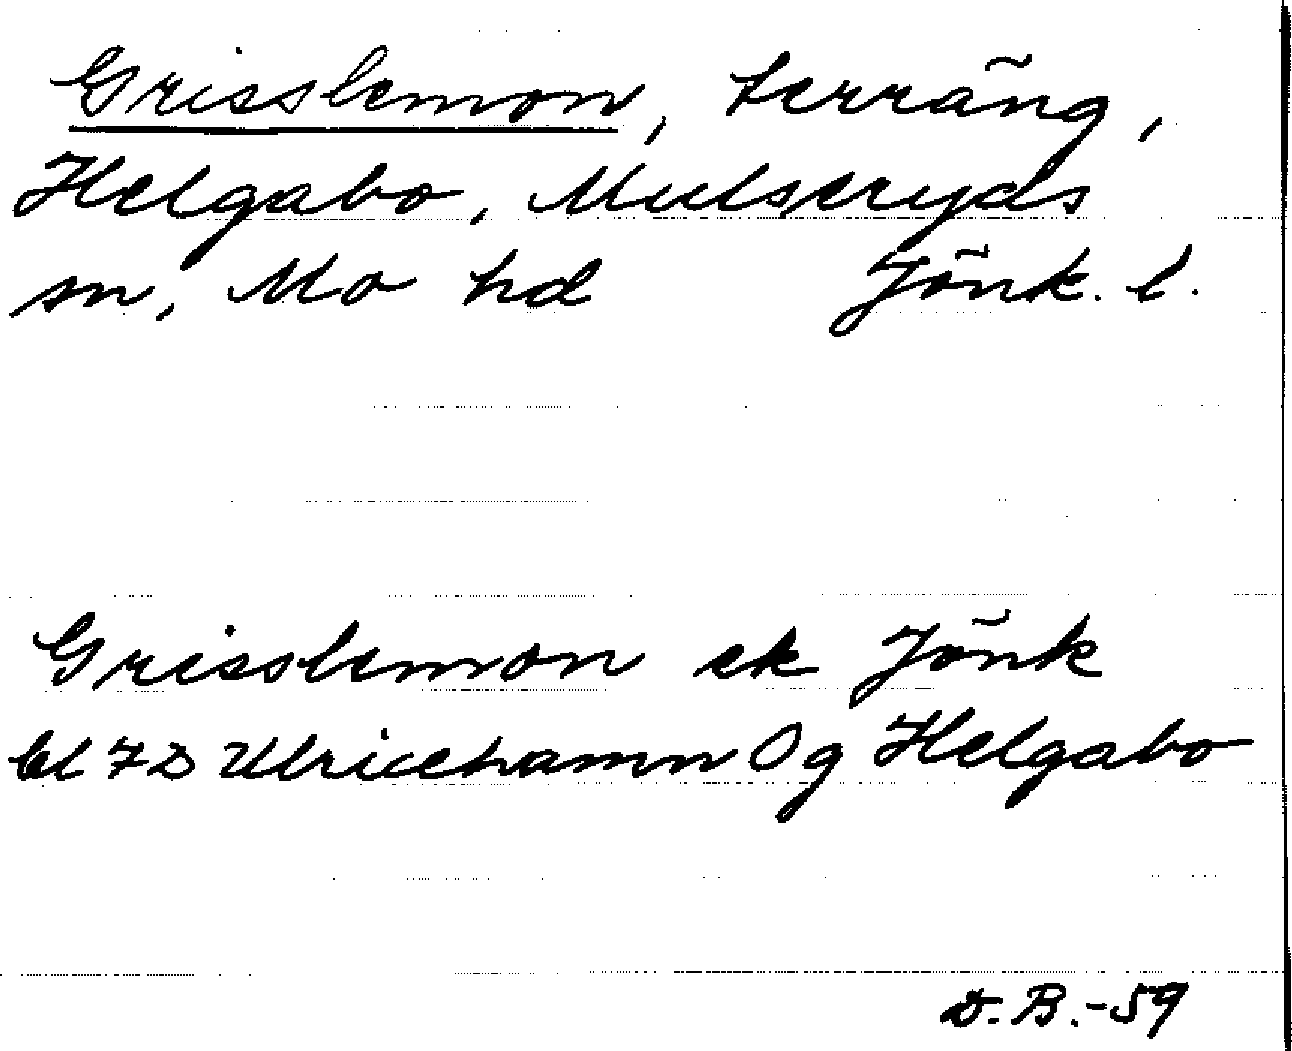 Grisslemon, terräng,
Helgabo, Mulseryds
sn, Mo hd Jönk. l.
Grisslemon ek Jönk
bl 7D Ulricehamn Og Helgabo
D.B.-59